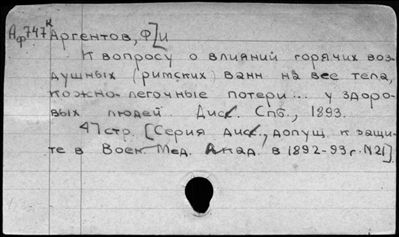 Аф747к Аргентов, Ф]и
К вопросу о влияний горячих воз-
душных (римских) ванн на вес тела,
кожно-легочные потери... у здоро-
вых людей. Дисс. Спб., 1893.
47 стр. [Серия дисс., допущ. к защи-
те в Воен. Мед. Акад. в 1892-93 г. N21]